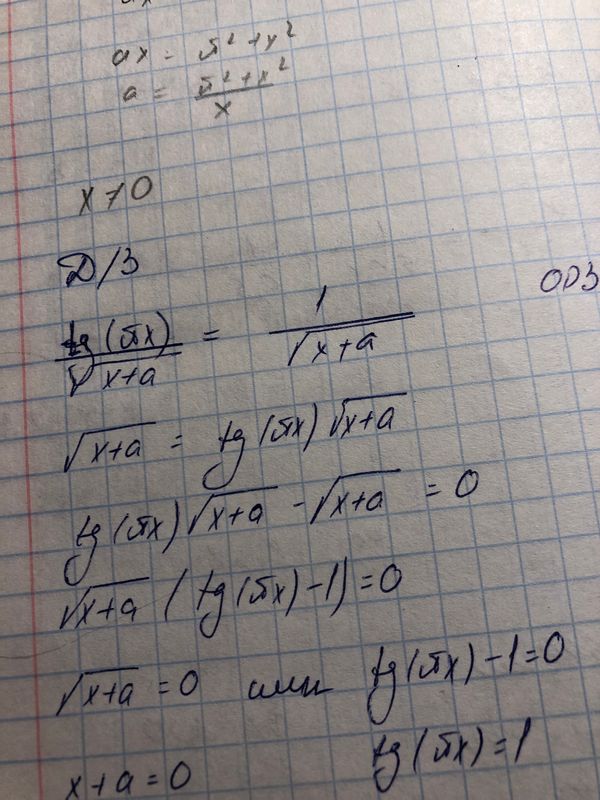 ax = π² + x²
a = (π² + x²)/x
x ≠ 0
Д/З
ОДЗ
tg(πx)/√(x+a) = 1/√(x+a)
√(x+a) = tg(πx)√(x+a)
tg(πx)√(x+a) - √(x+a) = 0
√(x+a) (tg(πx) - 1) = 0
√(x+a) = 0 или tg(πx) - 1 = 0
x + a = 0 tg(πx) = 1